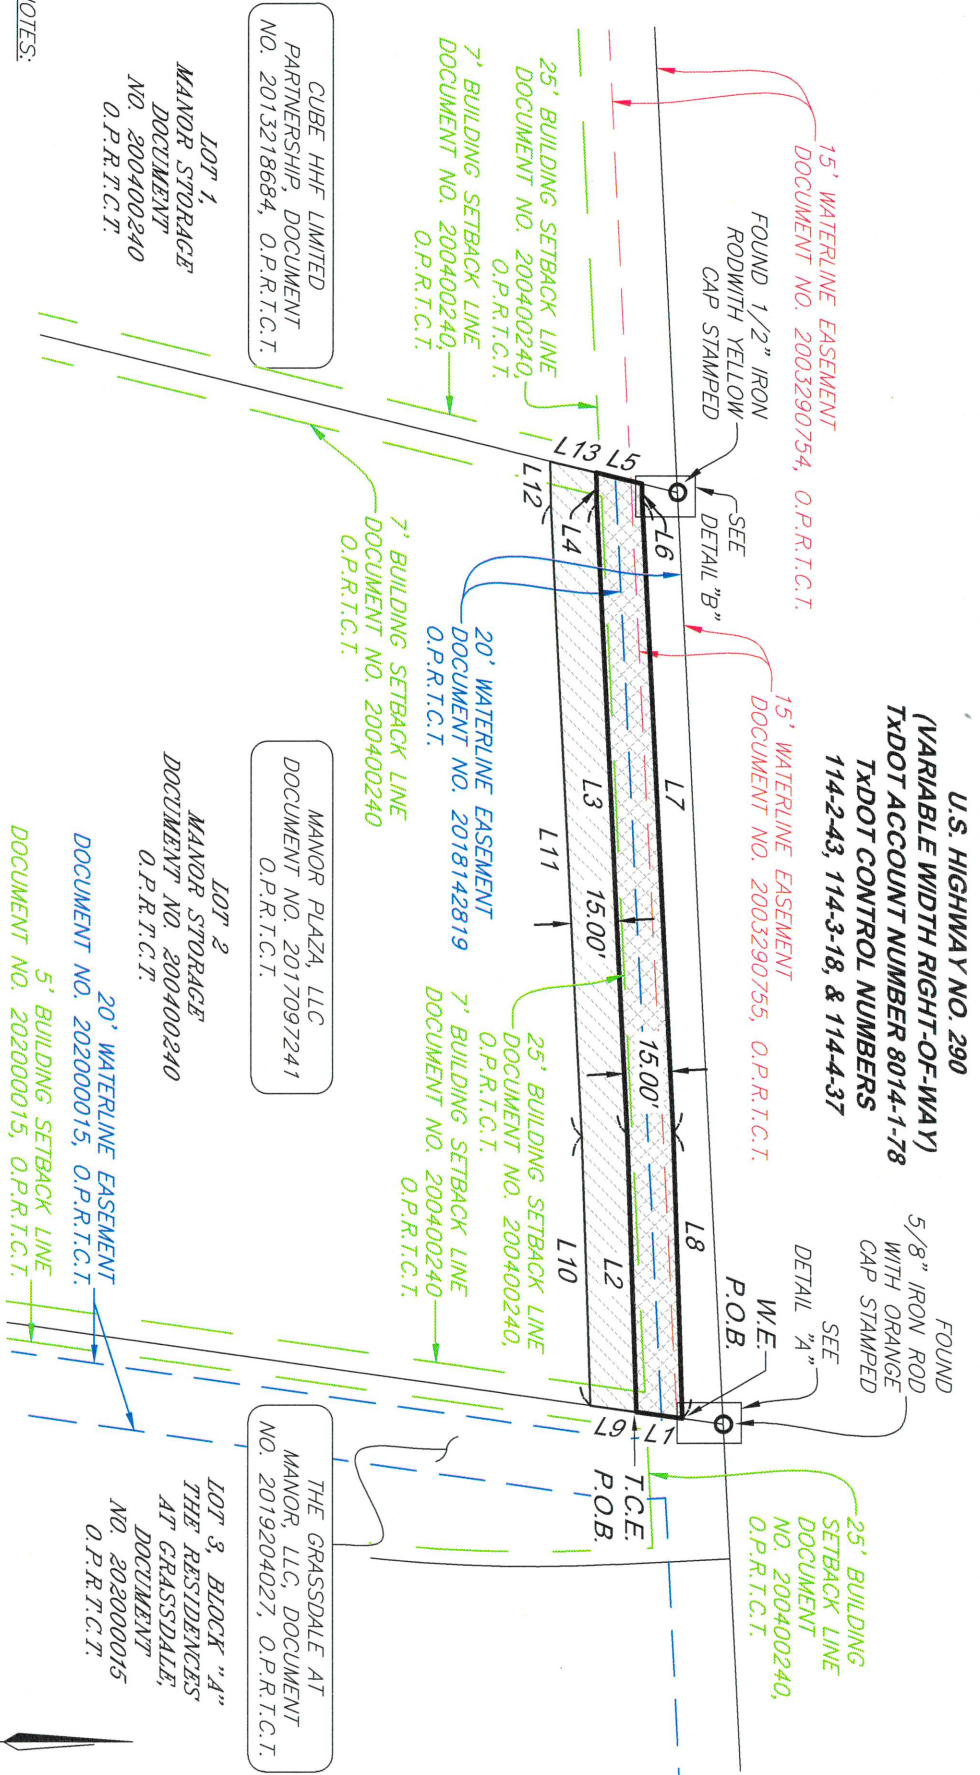 U.S. HIGHWAY NO. 290
(VARIABLE WIDTH RIGHT-OF-WAY)
TxDOT ACCOUNT NUMBER 8014-1-78
TxDOT CONTROL NUMBERS
114-2-43, 114-3-18, & 114-4-37
15' WATERLINE EASEMENT
DOCUMENT NO. 2003290754, O.P.R.T.C.T.
FOUND 1/2" IRON
RODWITH YELLOW
CAP STAMPED
SEE
DETAIL "B"
15' WATERLINE EASEMENT
DOCUMENT NO. 2003290755, O.P.R.T.C.T.
FOUND
5/8" IRON ROD
WITH ORANGE
CAP STAMPED
SEE
DETAIL "A"
W.E.
P.O.B.
25' BUILDING
SETBACK LINE
DOCUMENT
NO. 200400240,
O.P.R.T.C.T.
25' BUILDING SETBACK LINE
DOCUMENT NO. 200400240,
O.P.R.T.C.T.
7' BUILDING SETBACK LINE
DOCUMENT NO. 200400240,
O.P.R.T.C.T.
L13
L5
L6
L7
L8
L12
L4
L3
L11
15.00'
15.00'
L2
L10
L9
L1
T.C.E.
P.O.B.
20' WATERLINE EASEMENT
DOCUMENT NO. 2018142819
O.P.R.T.C.T.
7' BUILDING SETBACK LINE
DOCUMENT NO. 200400240
O.P.R.T.C.T.
25' BUILDING SETBACK LINE
DOCUMENT NO. 200400240,
O.P.R.T.C.T.
7' BUILDING SETBACK LINE
DOCUMENT NO. 200400240
O.P.R.T.C.T.
CUBE HHF LIMITED
PARTNERSHIP, DOCUMENT
NO. 2013218684, O.P.R.T.C.T.
MANOR PLAZA, LLC
DOCUMENT NO. 2017097241
O.P.R.T.C.T.
THE GRASSDALE AT
MANOR, LLC, DOCUMENT
NO. 2019204027, O.P.R.T.C.T.
LOT 1,
MANOR STORAGE
DOCUMENT
NO. 200400240
O.P.R.T.C.T.
LOT 2
MANOR STORAGE
DOCUMENT NO. 200400240
O.P.R.T.C.T.
LOT 3, BLOCK "A"
THE RESIDENCES
AT GRASSDALE,
DOCUMENT
NO. 202000015
O.P.R.T.C.T.
20' WATERLINE EASEMENT
DOCUMENT NO. 202000015, O.P.R.T.C.T.
5' BUILDING SETBACK LINE
DOCUMENT NO. 202000015, O.P.R.T.C.T.
OTES: